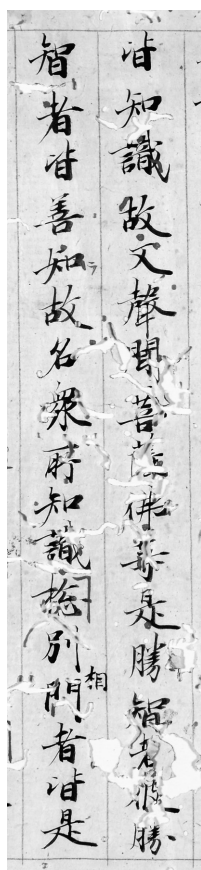 皆知識故文聲聞菩薩佛等是勝智者彼勝
智者皆善知故名衆所知識揔別門相者皆是